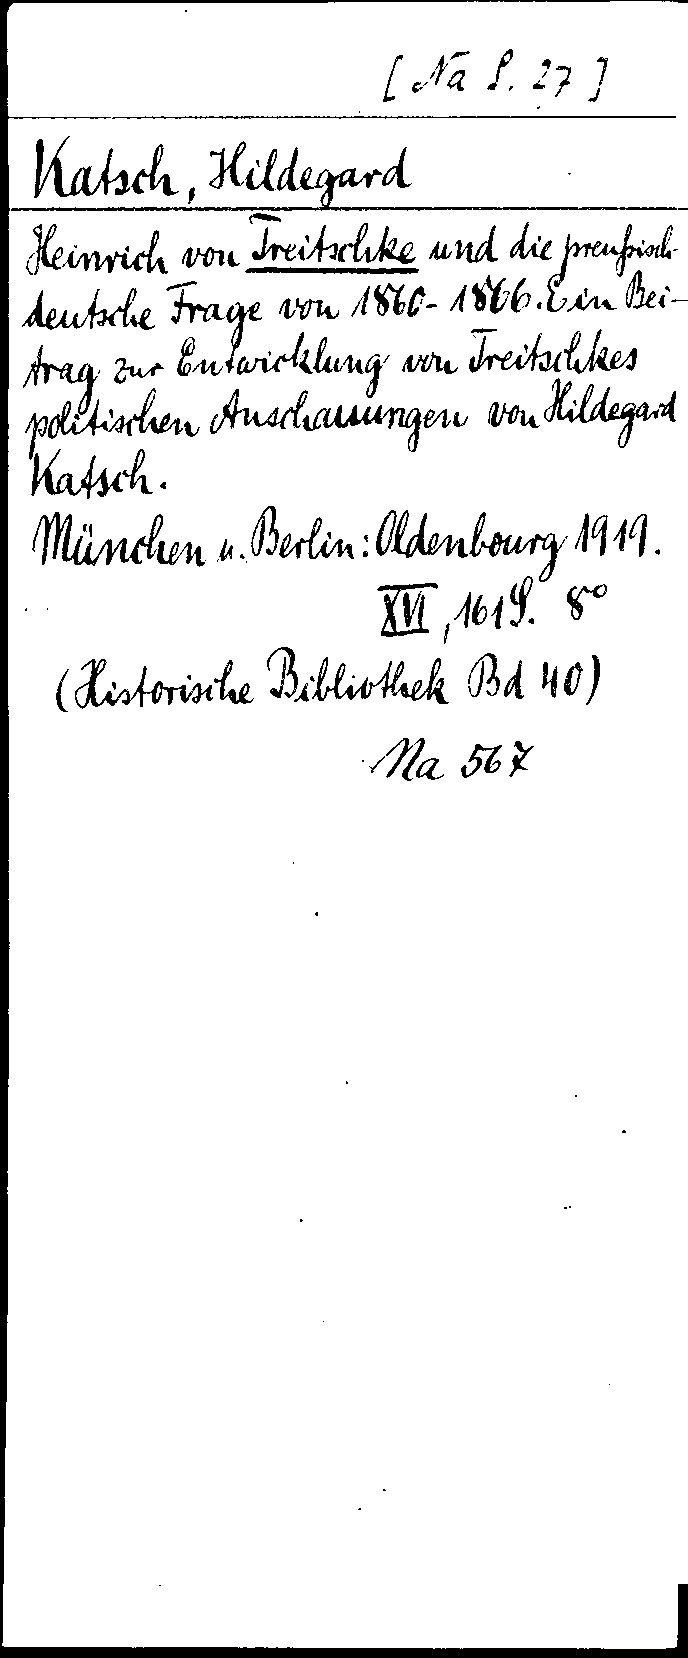 [Na S. 27]
Katsch, Hildegard
Heinrich von Treitschke und die preußisch-
deutsche Frage von 1860-1866. Ein Bei-
trag zur Entwicklung von Treitschkes
politischen Anschauungen von Hildegard
Katsch.
München u. Berlin: Oldenbourg 1919.
XVI, 161 S. 8°
(Historische Bibliothek Bd 40)
Na 567